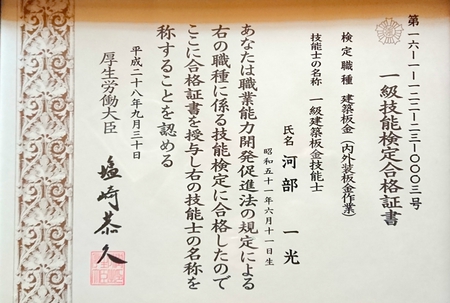 第一六-1-一二二-二三-〇〇〇三号
一級技能検定合格証書
検定職種　建築板金（内外装板金作業）
技能士の名称　一級建築板金技能士
氏名　河部　一光
昭和五十一年六月十一日生
あなたは職業能力開発促進法の規定による
右の職種に係る技能検定に合格したので
ここに合格証書を授与し右の技能士の名称を
称することを認める
平成二十八年九月三十日
厚生労働大臣　塩崎恭久